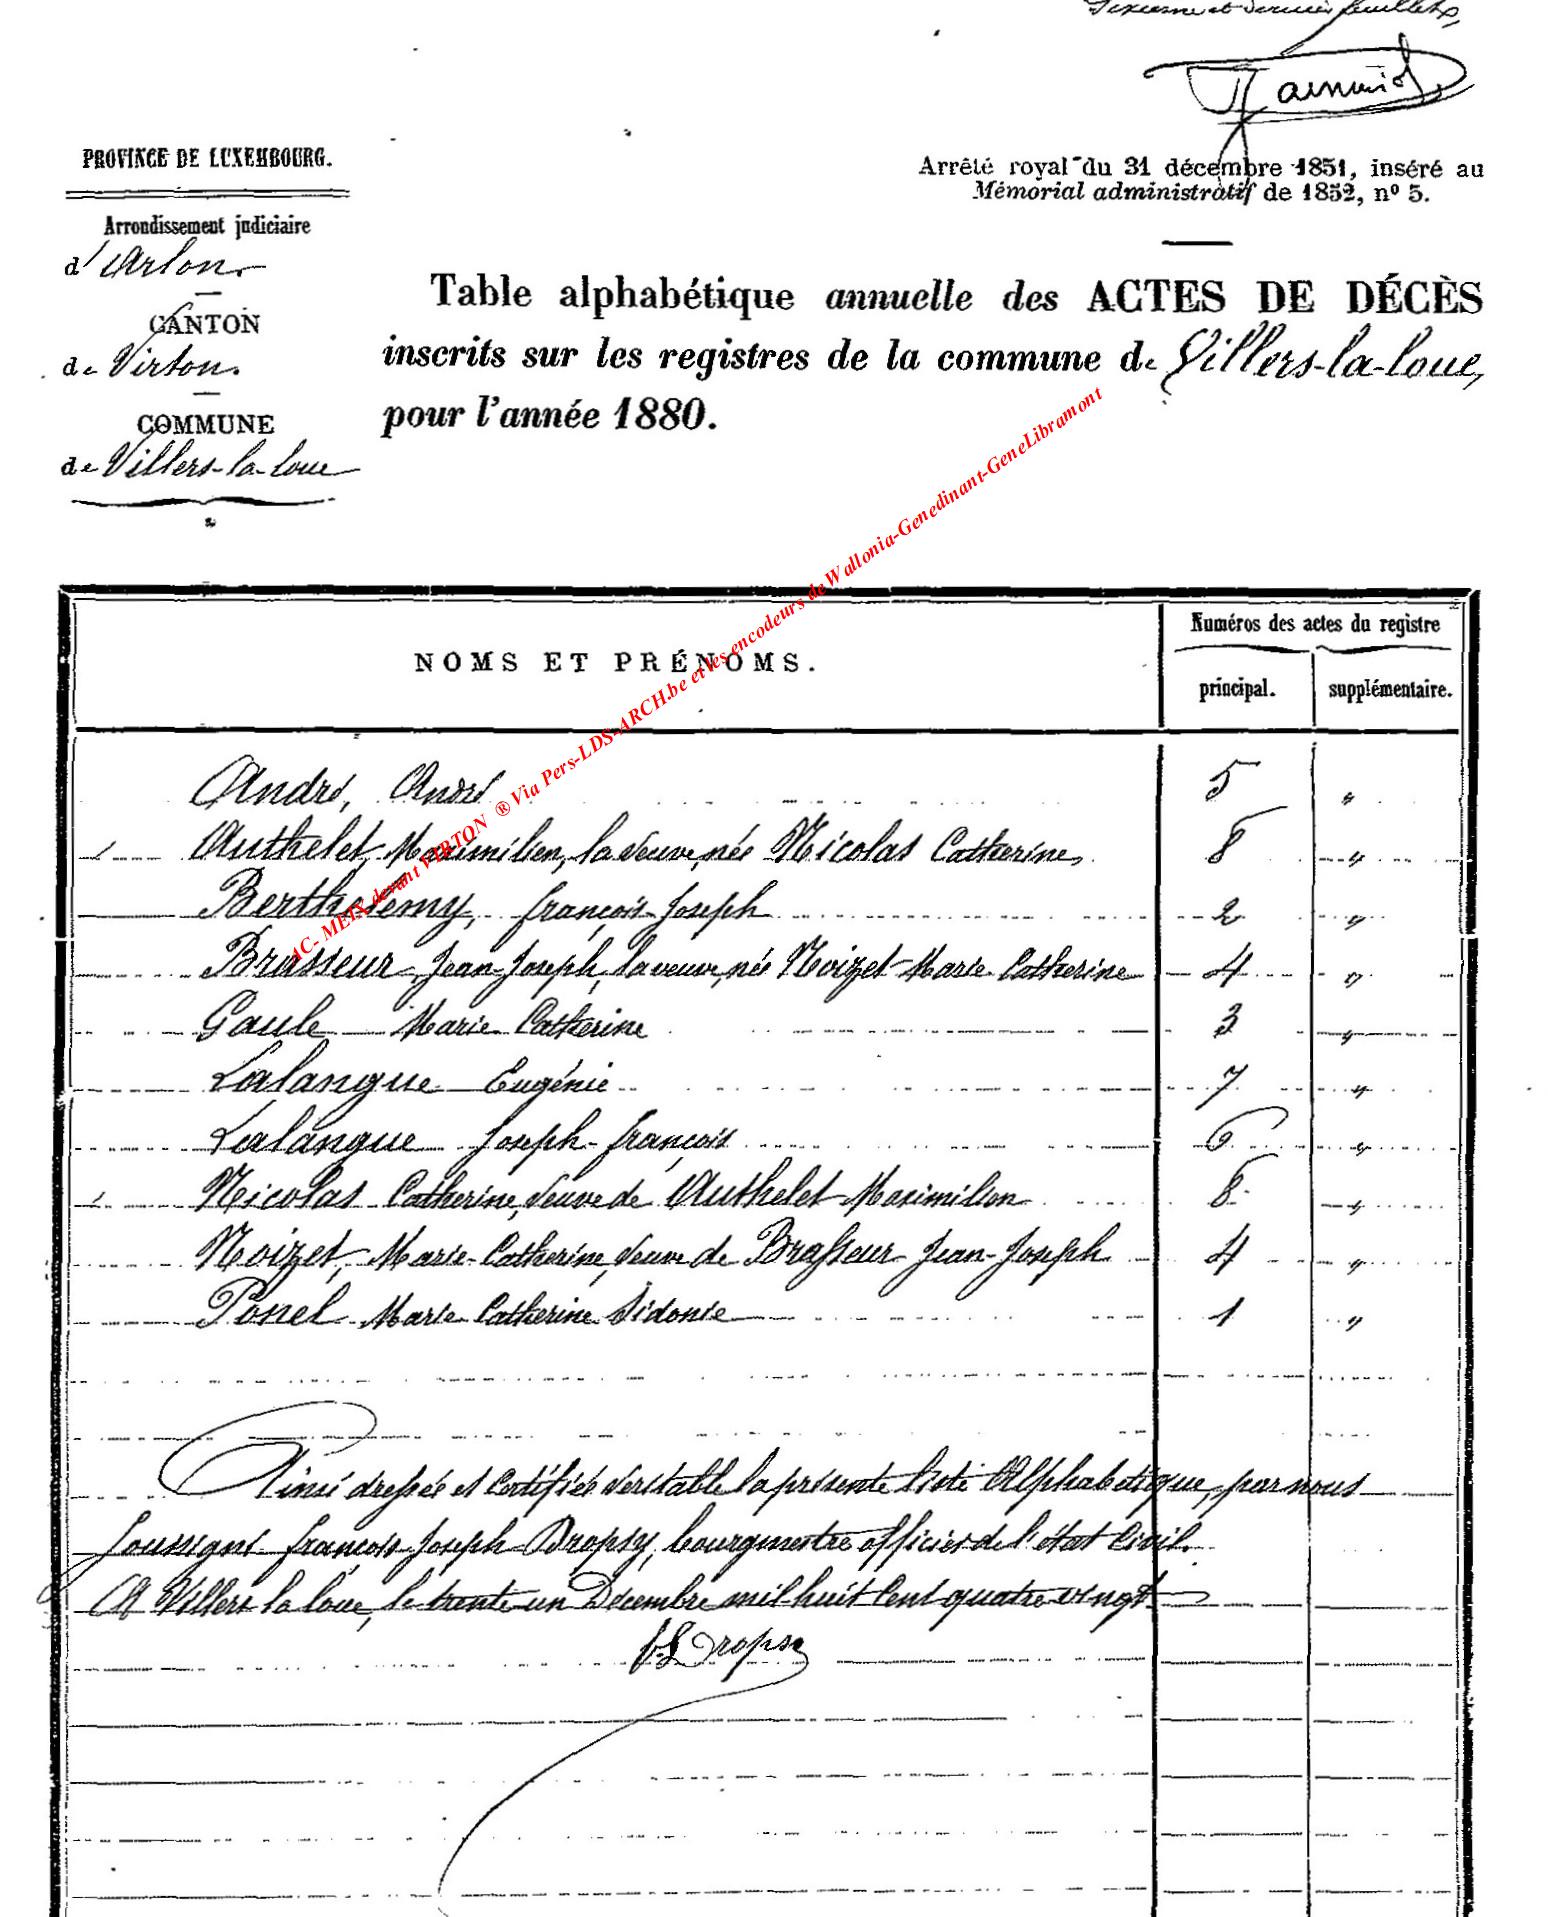 et dernier feuillet,
PROVINCE DE LUXEMBOURG.
Arrêté royal du 31 décembre 1851, inséré au
Mémorial administratif de 1852, nº 5.
Arrondissement judiciaire
d'Arlon.
CANTON
de Virton.
COMMUNE
de Villers-la-loue
Table alphabétique annuelle des ACTES DE DÉCÈS
inscrits sur les registres de la commune de Villers-la-loue,
pour l'année 1880.
AC- MEIX devant VIRTON ® Via Pers-LDS-ARCH.be et les encodeurs de Wallonia-Genedinant-GeneLibramont
NOMS ET PRÉNOMS.
Numéros des actes du registre
principal. supplémentaire.
André, André 5 "
Authelet, Maximilien, la veuve, née Nicolas Catherine, 8 "
Berthelemy, françois-Joseph 2 "
Brasseur, Jean-Joseph, la veuve, née Noizet Marie Catherine 4 "
Gaule Marie Catherine 3 "
Lalangue Eugénie 7 "
Lalangue Joseph-françois 6 "
Nicolas Catherine, veuve de Authelet Maximilien 8 "
Noizet, Marie-Catherine, veuve de Brasseur Jean-Joseph 4 "
Ponel Marie Catherine Sidonie 1 "
Ainsi dressée et certifiée véritable la présente liste Alphabétique, par nous
soussigné françois Joseph Dropsy, bourgmestre officier de l'état civil.
A Villers la loue, le trente un Décembre mil huit cent quatre vingt
Dropsy